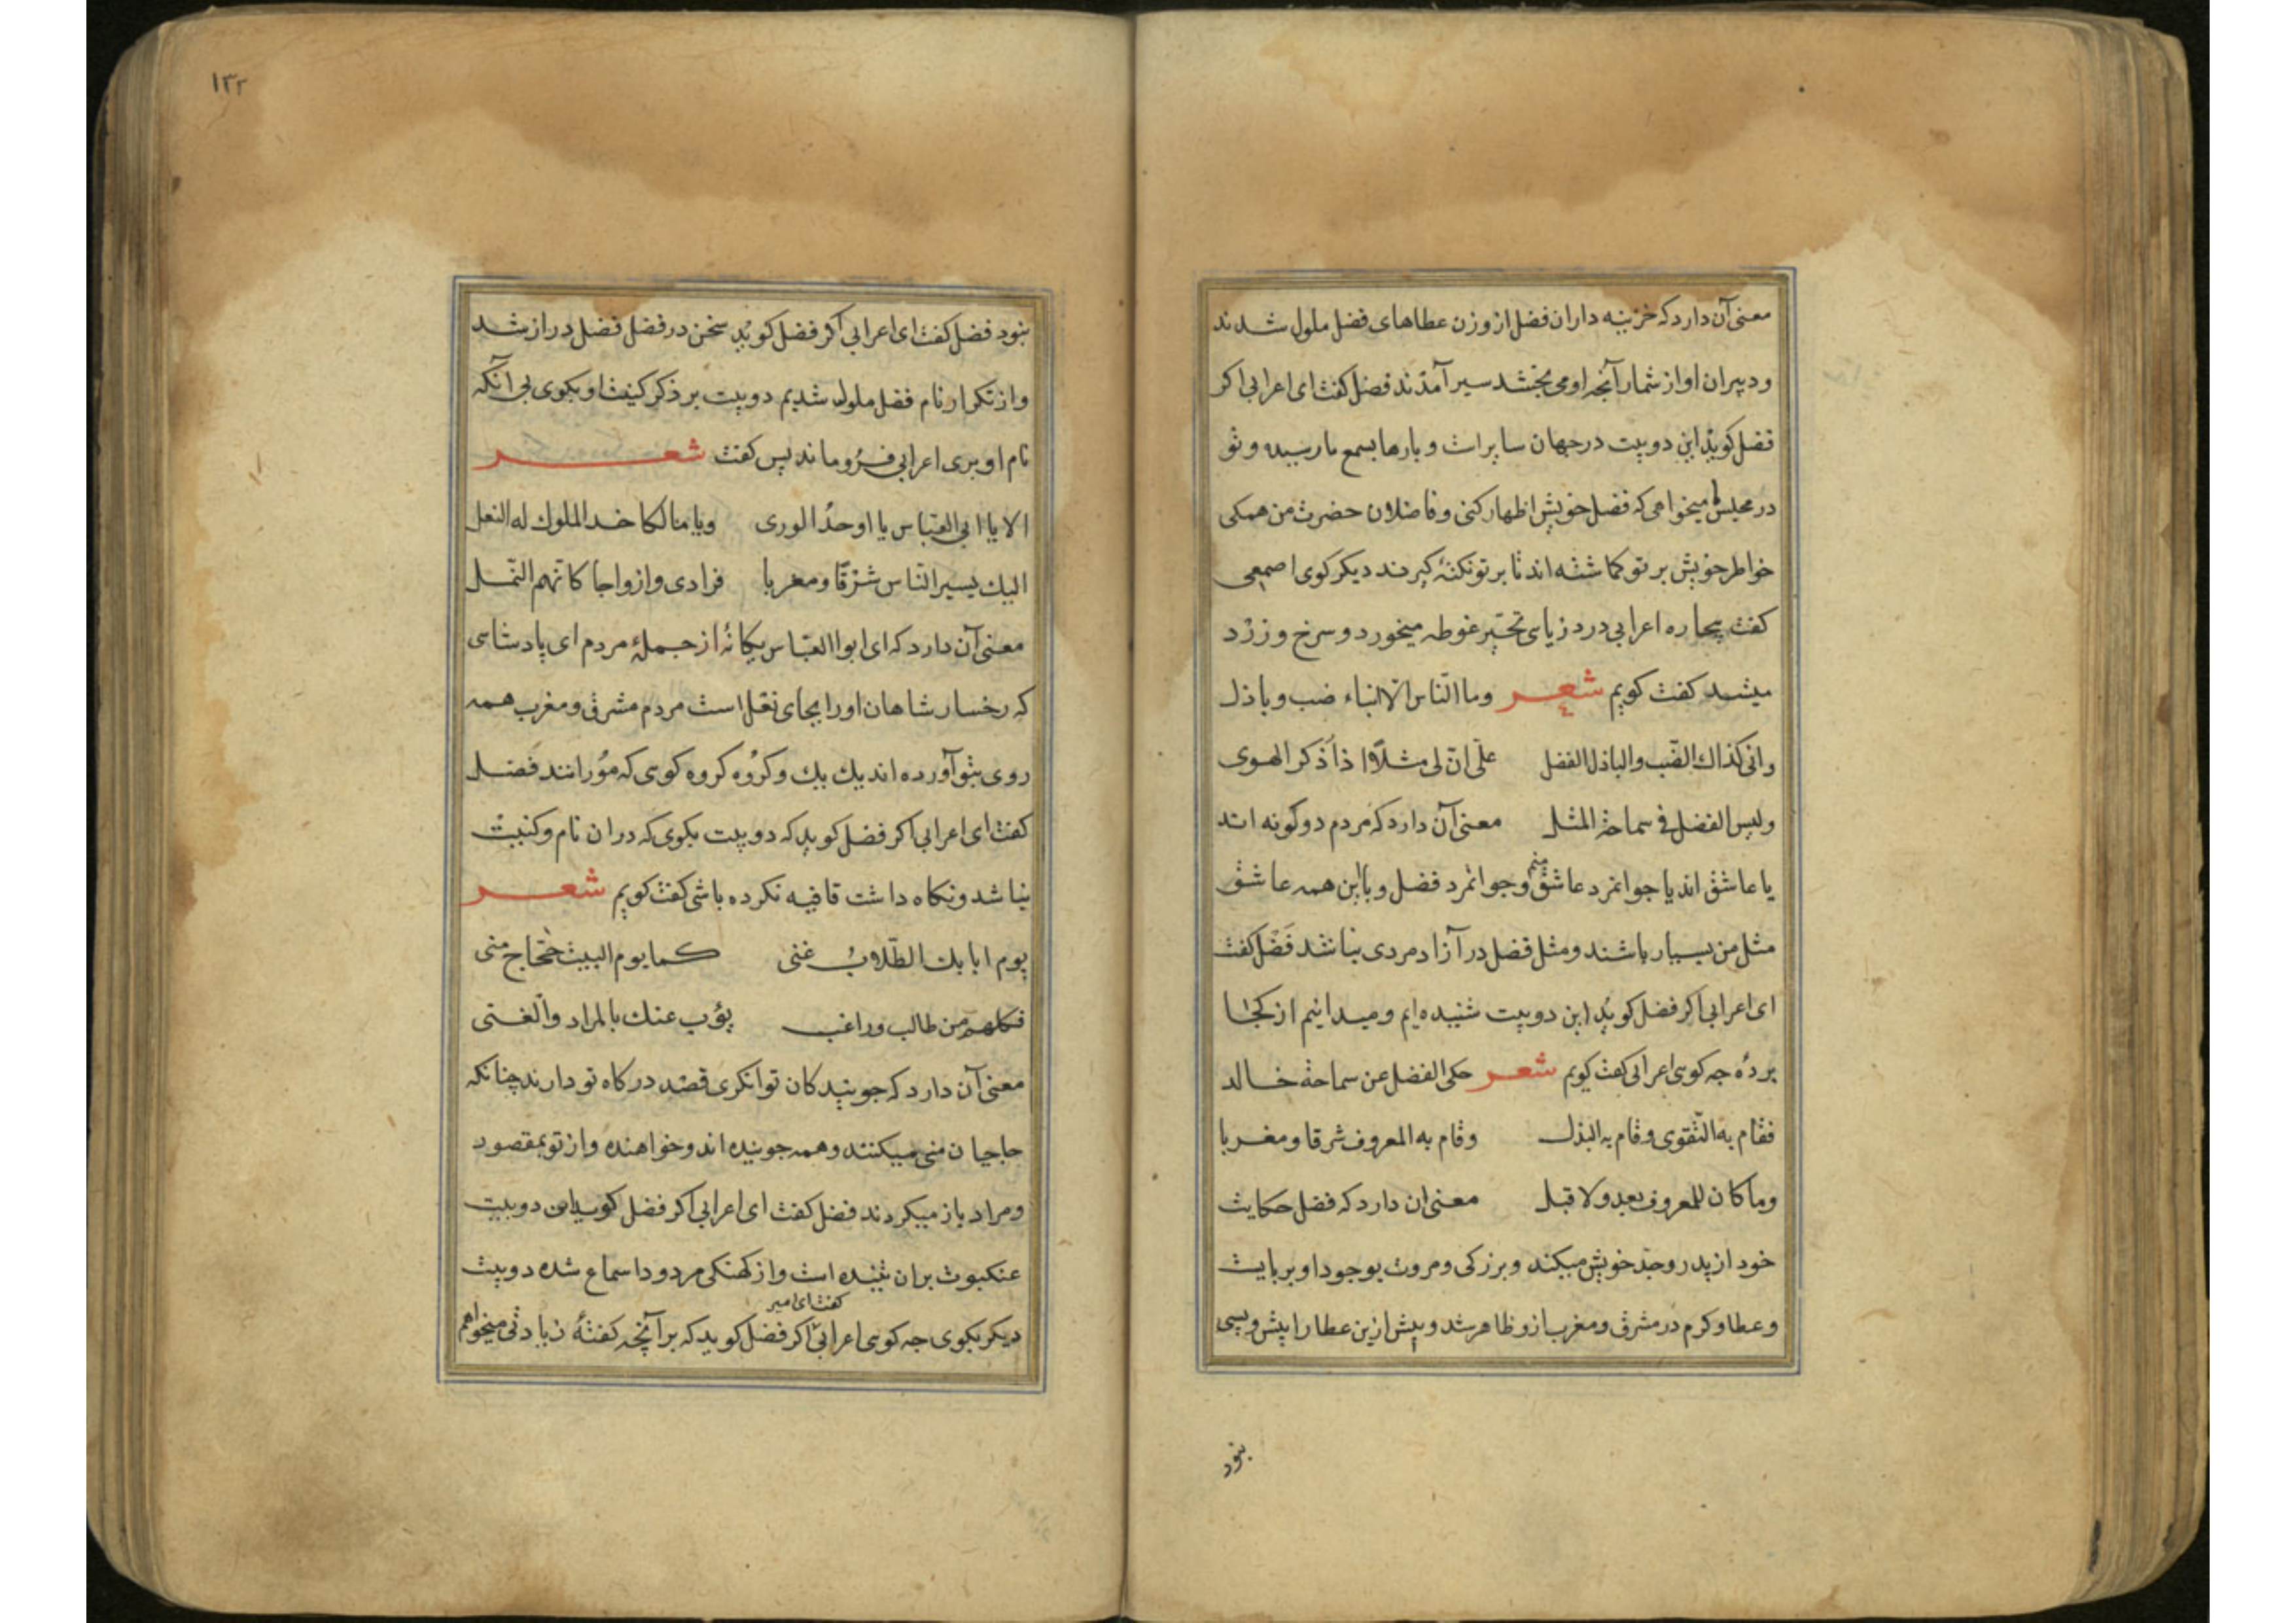 معنی آن دارد که خزینه داران فضل از وزن عطاهای فضل ملول شدند
و دبیران او از شمار آنچه او می بخشد سیر آمدند فضل کفت ای اعرابی اکر
فضل کوید این دو بیت در جهان سایر است و بارها بسمع ما رسیده و تو
در مجلس ما میخواهی که فضل خویش اظهار کنی و فاضلان حضرت من همکی
خواطر خویش بر تو کماشته اند تا بر تو نکته کیرند دیکر کوی اصمعی
کفت بیچاره اعرابی در دریای تحیر غوطه میخورد و سرخ و زرد
میشد کفت کویم شعر وما الناس الا اثناء ضب و باذل
وانی کذاک الضب والباذل الفضل علی ان لی مثلا اذا ذکر الهوی
ولیس لفضل فی سماحة المثل معنی آن دارد که مردم دو کونه اند
یا عاشق اند یا جوانمرد عاشق منم و جوانمرد فضل و با این همه عاشق
مثل من بسیار باشند و مثل فضل در آزاد مردی نباشد فضل کفت
ای اعرابی اکر فضل کوید این دو بیت شنیده ایم و میدانیم از کجا
بردهٔ جه کوی اعرابی کفت کویم شعر حکی الفضل عن سماحة خالد
فقام به التقوی وقام به البذل وقام به المعروف شرقا ومغربا
وما کان للمعروف بعد ولا قبل معنی ان دارد که فضل حکایت
خود از پدر و جد خویش میکند و بزرکی و مروت بوجود او برپایست
و عطا و کرم در مشرق و مغرب ازو ظاهر شد و پیش ازین عطا را پیش و پسی
نبود
۱۳۲
نبود فضل کفت ای اعرابی اکر فضل کوید سخن در فضل فضل دراز شد
و از تکرار نام فضل ملول شدیم دو بیت بر ذکر کنیت او بکوی بی آنکه
نام او بری اعرابی فرو ماند پس کفت شعر
الا یا ابی العباس یا اوحد الوری ویا مالکا خد الملوک له النعل
الیک یسیر الناس شرقا ومغربا فرادی وازواجا کانهم النمل
معنی آن دارد که ای ابوا العباس یکانهٔ از جملهٔ مردم ای پادشاهی
که رخسار شاهان اورا بجای نعل است مردم مشرق و مغرب همه
روی بتو آورده اند یک یک و کروه کروه کویی که مورانند فضل
کفت ای اعرابی اکر فضل کوید که دو بیت بکوی که در ان نام و کنیت
نباشد و نکاه داشت قافیه نکرده باشی کفت کویم شعر
یوم ابا بک الطلاب غنی کما یوم البیت حجاج منی
فکلهم من طالب وراغب یؤب عنک بالمراد والغنی
معنی آن دارد که جویندکان توانکری قصد درکاه تو دارند چنانکه
حاجیان منی میکنند و همه جوینده اند و خواهنده و از تو بمقصود
و مراد باز میکردند فضل کفت ای اعرابی اکر فضل کوید این دو بیت
عنکبوت بران تنیده است و از کهنکی مردود اسماع شده دو بیت
کفت ای امیر
دیکر بکوی جه کویی اعرابی اکر فضل کوید که بر آنچه کفتهٔ زیادتی میخواهم